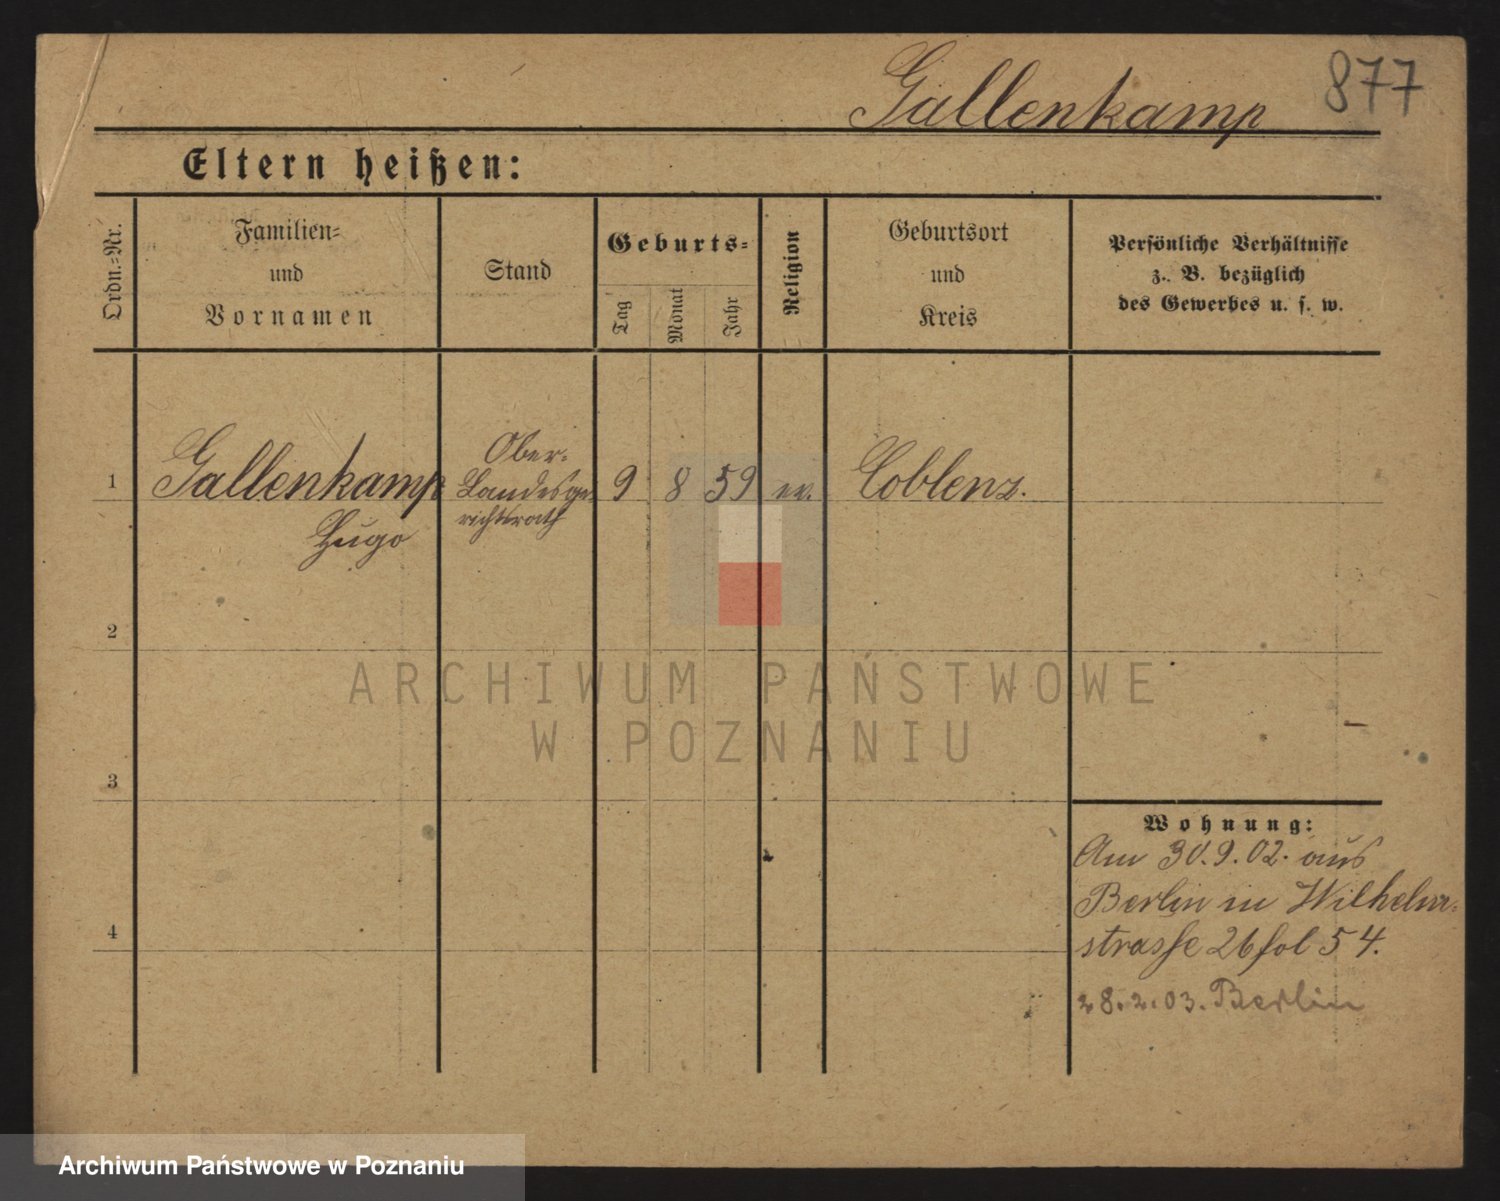 Gallenkamp 877
Eltern heißen:
Ordn.-Nr.
Familien-
und
Vornamen
Stand
Geburts-
Tag
Monat
Jahr
Religion
Geburtsort
und
Kreis
Persönliche Verhältnisse
z. B. bezüglich
des Gewerbes u. s. w.
1
Gallenkamp
Hugo
Ober-
Landesge-
richtsrath
9 8 59 ev. Coblenz.
2
3
4
Wohnung:
Am 30.9.02. aus
Berlin in Wilhelm-
strasse 26 fol 54.
28.2.03. Berlin
ARCHIWUM PAŃSTWOWE
W POZNANIU
Archiwum Państwowe w Poznaniu